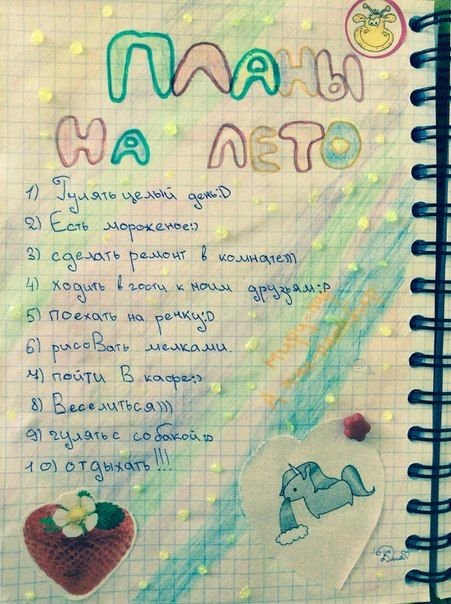 ПЛАНЫ
НА ЛЕТО
1) Гулять целый день:D
2) Есть мороженое:)
3) сделать ремонт в комнате)))
4) ходить в гости к моим друзьям:D
5) поехать на речку:D
6) рисовать мелками.
7) пойти в кафе:)
8) Веселиться)))
9) гулять с собакой:D
10) отдыхать!!!